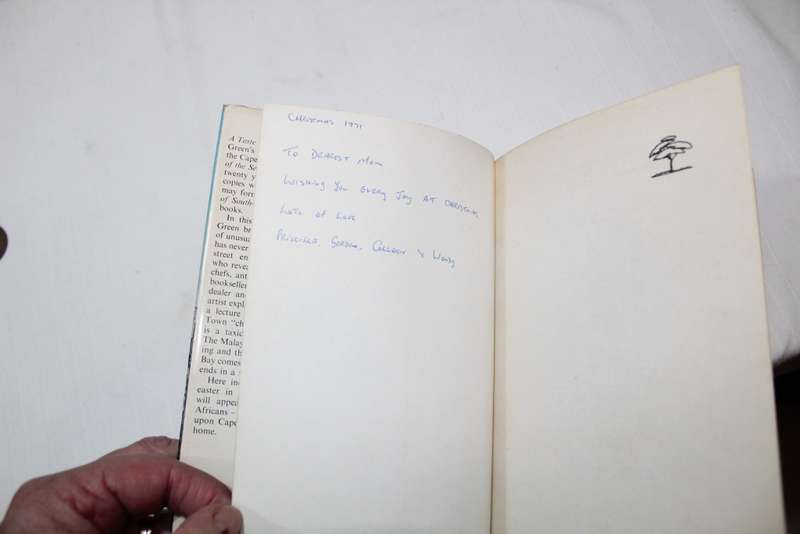 A Taste
Green's
the Cape
of the Se
twenty y
copies w
may form
of South
books.
In this
Green br
of unusua
has never
street en
who revea
chefs, ant
bookselle
dealer and
artist expl
a lecture
Town "ch
is a taxic
The Malay
ing and th
Bay comes
ends in a
Here in
easter in
will appea
Africans –
upon Cape
home.
CHRISTMAS 1971
TO DEAREST MOM
WISHING YOU EVERY JOY AT CHRISTMAS
LOTS OF LOVE
PRISCILLA, GORDON, COLLEEN & WENDY